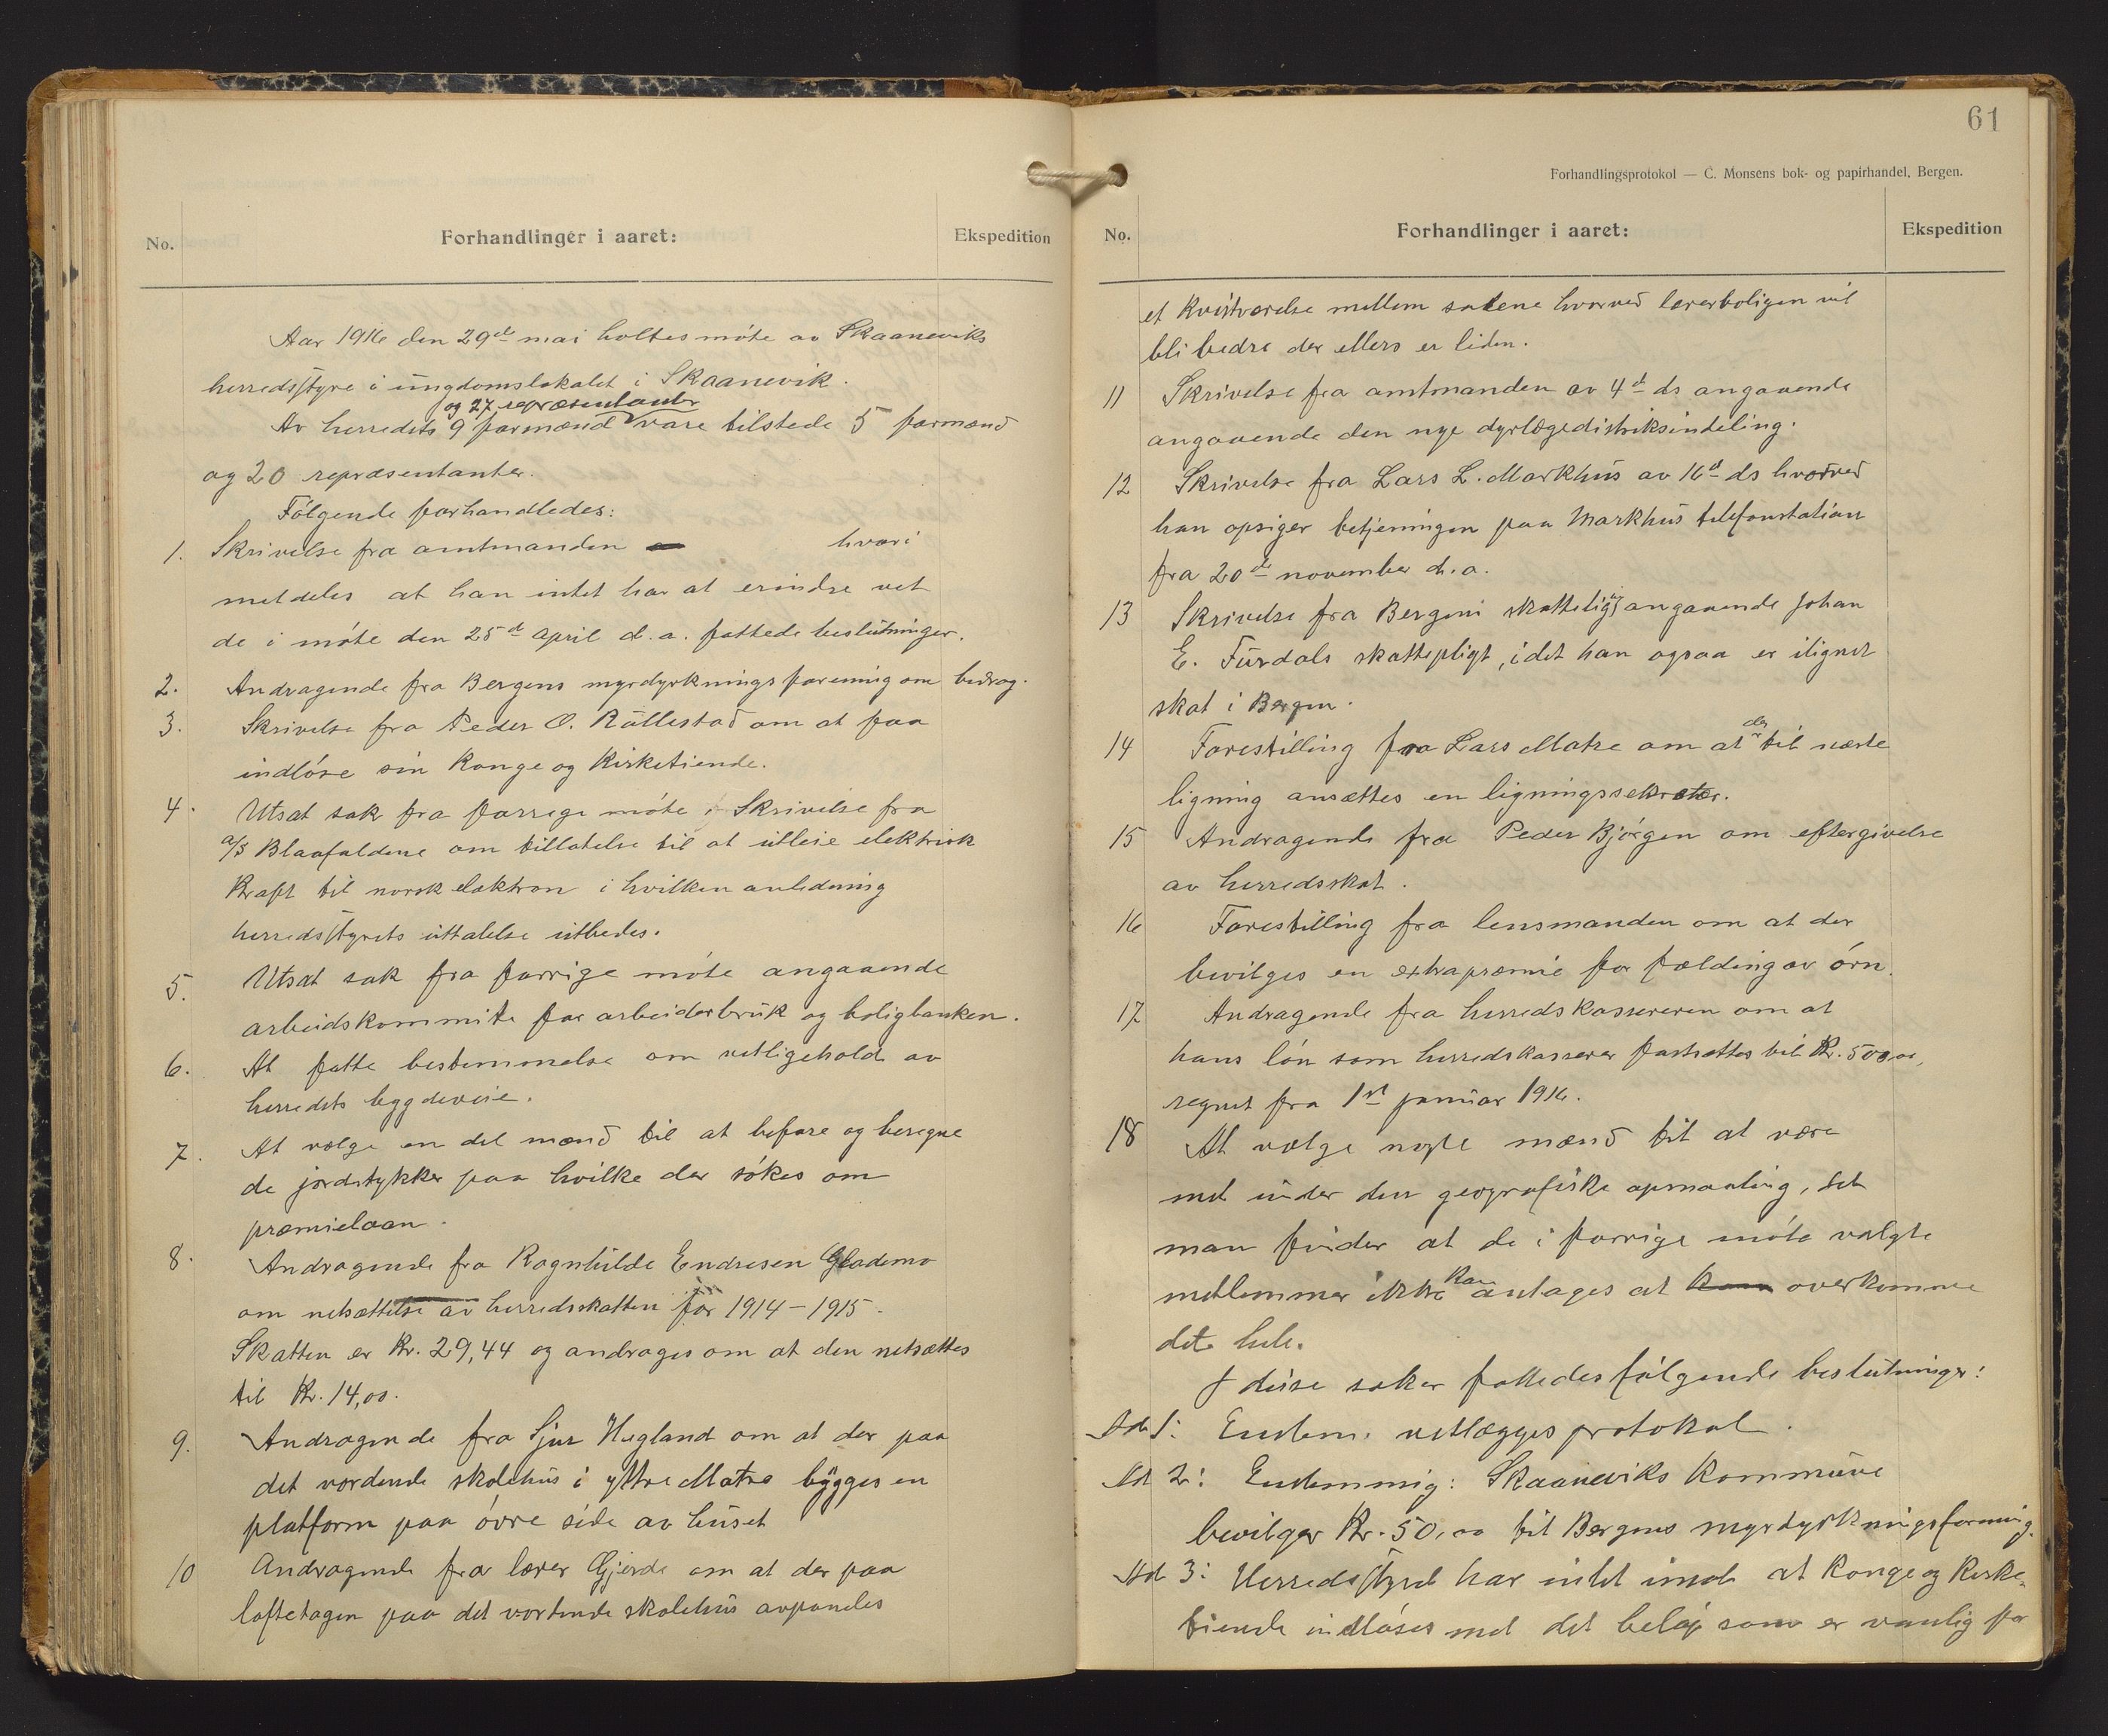 No.
Forhandlinger i aaret:
Ekspedition
Aar 1916 den 29de mai holtes møte av Skaaneviks
herredsstyre i ungdomslokalet i Skaanevik.
og 27 repræsentanter
Av herredets 9 formænd vare tilstede 5 formænd
og 20 repræsentanter.
Følgende forhandledes:
1. Skrivelse fra amtmanden hvori
meldeles at han intet har at erindre vet
de i møte den 25de april d.a. fattede beslutninger.
2. Andragende fra Bergens myrdyrkningsforening om bidrag.
3. Skrivelse fra Peder O. Rullestad om at faa
indløse sin Konge og Kirketiende.
4. Utsat sak fra forrige møte Skrivelse fra
a/s Blaafaldene om tillatelse til at utleie elektrisk
Kraft til norsk elektron i hvilken anledning
herredsstyrets uttalelse utbedes.
5. Utsat sak fra forrige møte angaaende
arbeidskommite for arbeiderbruk og boligbanken.
6. At fatte bestemmelse om vetligehold av
herredets bygdeveie.
7. At vælge en del mænd til at befare og beregne
de jordstykker paa hvilke der søkes om
præmielaan.
8. Andragende fra Ragnhilde Endresen Glademo
om netsættelse av herredsskatten for 1914-1915.
Skatten er Kr. 29,44 og andrages om at den netsættes
til Kr. 14,00.
9. Andragende fra Sjur Hegland om at der paa
det vordende skolehus i ytre Matre bygges en
platform paa øvre side av huset
10 Andragende fra lærer Gjerde om at der paa
loftetagen paa det vordende skolehus avpaneles
61
Forhandlingsprotokol — C. Monsens bok- og papirhandel, Bergen.
No.
Forhandlinger i aaret:
Ekspedition
et Kvistværelse mellem salene hvorved lærerboligen vil
bli bedre der ellers er liden.
11 Skrivelse fra amtmanden av 4de ds angaaende
angaaende den nye dyrlægedistriksindeling.
12 Skrivelse fra Lars L. Markhus av 16de ds hvorved
han opsiger betjeningen paa Markhus telefonstation
fra 20de november d.a.
13 Skrivelse fra Bergens angaaende Johan
E. Furdals skattepligt, idet han ogsaa er ilignet
skat i Bergen.
14 Forestilling fra Lars Matre om at der til næste
ligning ansættes en ligningssekretær.
15 Andragende fra Peder Bjørgen om eftergivelse
av herredsskat.
16 Forestilling fra lensmanden om at der
bevilges en extrapræmie for fælding av ørn.
17 Andragende fra herredskassereren om at
hans løn som herredskasserer fastsættes til Kr. 500,00,
regnet fra 1st januar 1916.
18 At vælge nogle mænd til at være
med under den geografiske opmaaling, det
man finder at de i forrige møte valgte
medlemmer ikke kan antages at overkomme
det hele.
I disse saker fattedes følgende beslutninger:
Ad 1: Enstem. vetlægges protokol.
Ad 2: Enstemmig: Skaaneviks Kommune
bevilger Kr. 50,00 til Bergens myrdyrkningsforening.
Ad 3: Herredsstyret har intet imot at Konge og Kirke-
tiende indløses med det beløp som er vanlig for